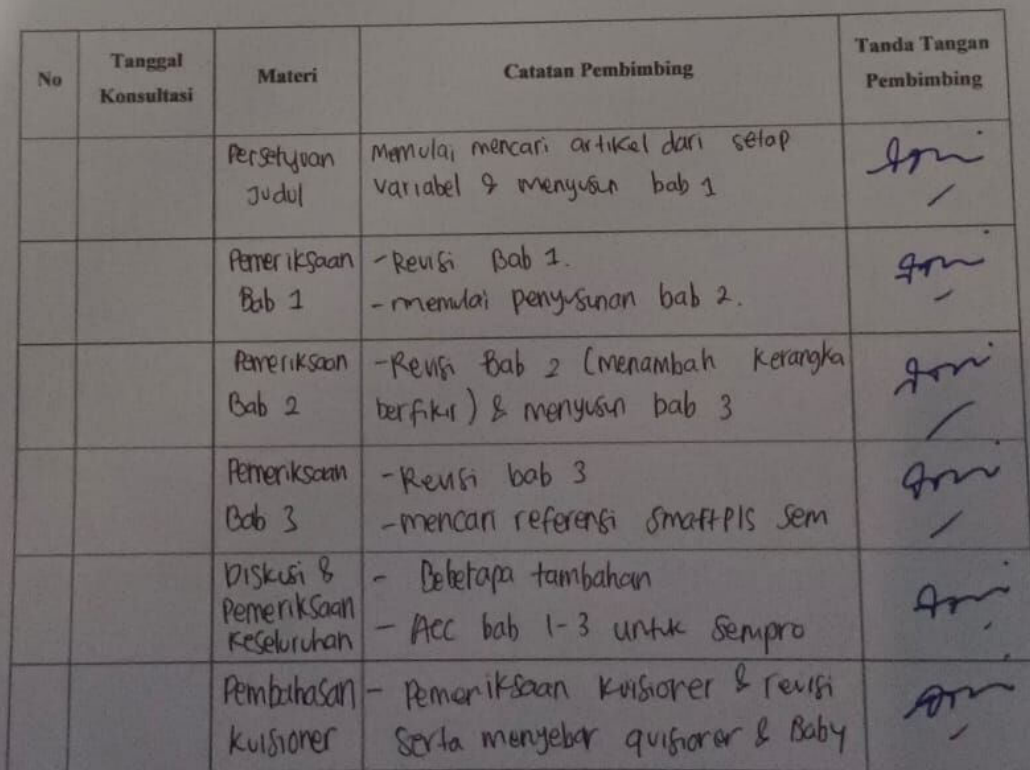 No
Tanggal
Konsultasi
Materi
Catatan Pembimbing
Tanda Tangan
Pembimbing
Persetujuan
Judul
Memulai mencari artikel dari setiap
variabel & menyusun bab 1
Pemeriksaan
Bab 1
- Revisi Bab 1.
- memulai penyusunan bab 2.
Pemeriksaan
Bab 2
- Revisi Bab 2 (Menambah kerangka
berfikir) & menyusun bab 3
Pemeriksaan
Bab 3
- Revisi bab 3
- mencari referensi SmartPls Sem
Diskusi &
Pemeriksaan
Keseluruhan
- Beberapa tambahan
- Acc bab 1-3 untuk Sempro
Pembahasan
kuisioner
- Pemeriksaan kuisioner & revisi
serta menyebar quisioner & Baby